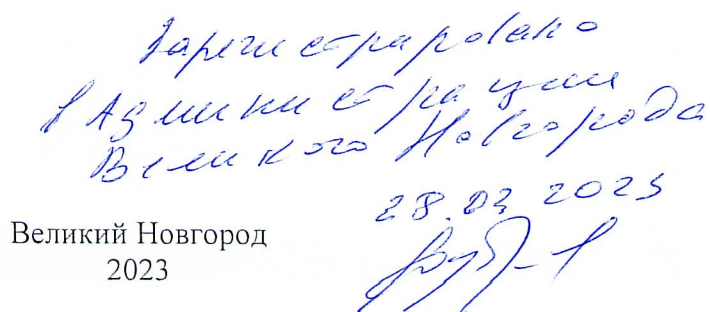 Зарегистрировано
в Администрации
Великого Новгорода
28.02 2023
Великий Новгород
2023